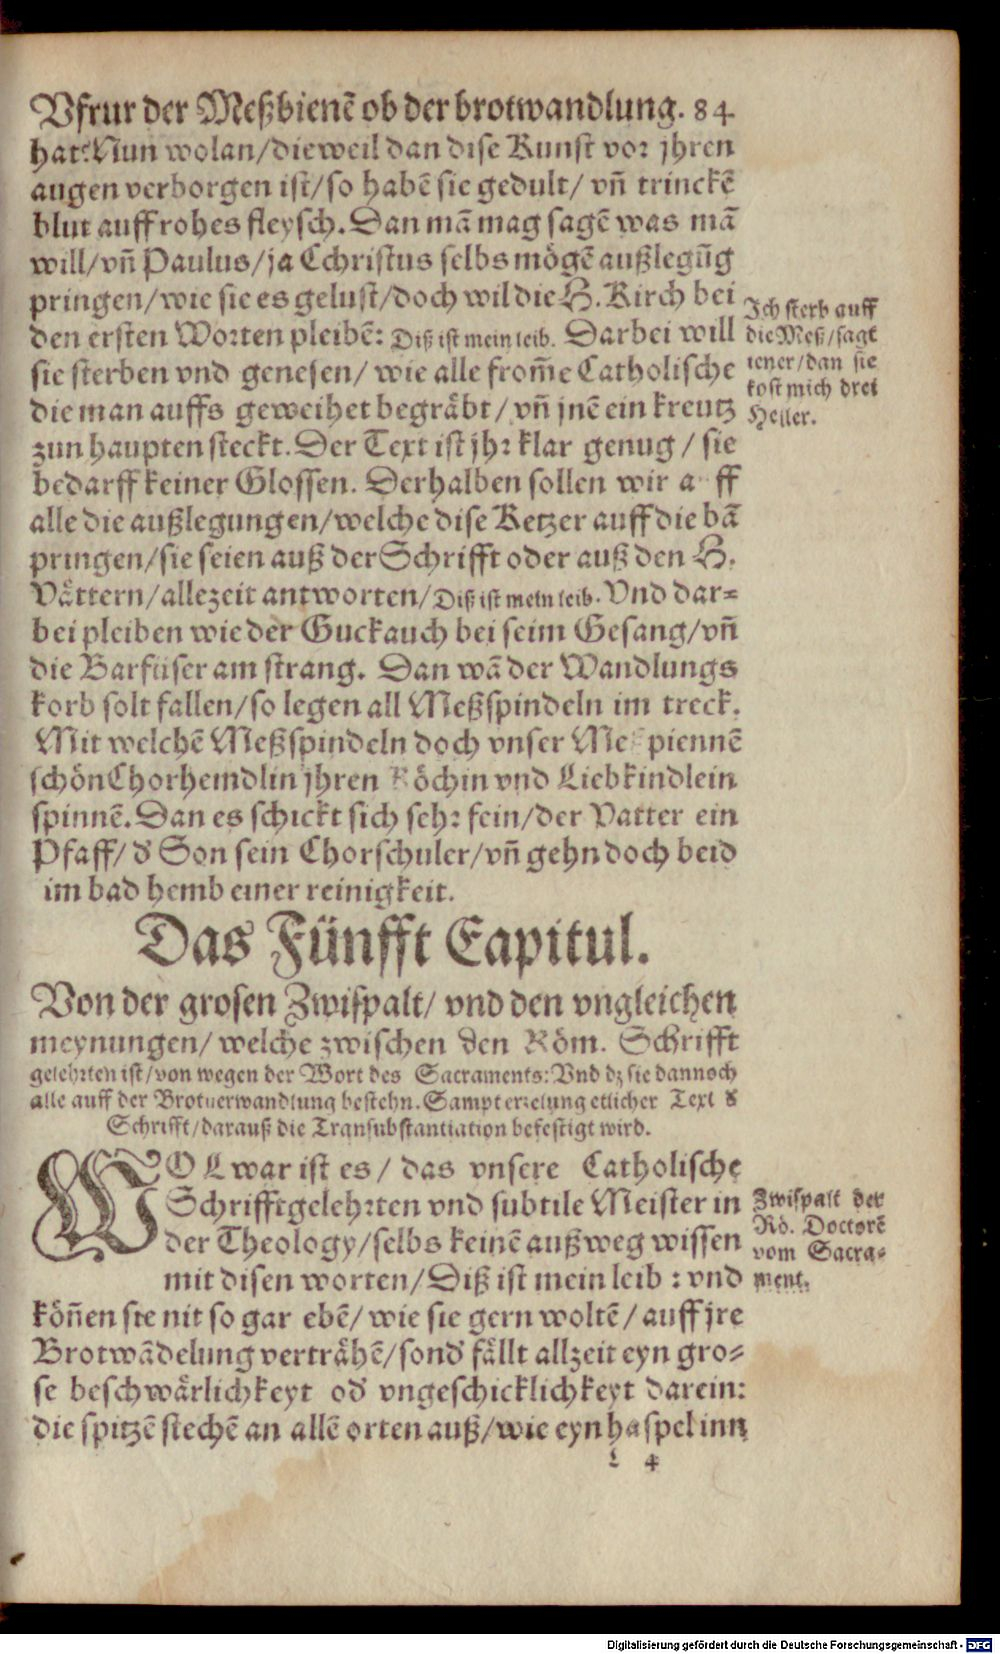 Vfrur der Meßbienẽ ob der brotwandlung. 84
hat? Nun wolan/ dieweil dan dise Kunst vor jhren
augen verborgen ist/ so habẽ sie gedult/ vñ trinckẽ
blut auff rohes fleysch. Dan mã mag sagẽ was mã
will/ vñ Paulus/ ja Cchristus selbs mögẽ außlegũg
pringen/ wie sie es gelust/ doch wil die H. Kirch bei
den ersten Worten pleibẽ: Diß ist mein leib. Darbei will
sie sterben vnd genesen/ wie alle from̃e Catholische
die man auffs geweihet begräbt/ vñ jnẽ ein kreutz
zun haupten steckt. Der Text ist jhr klar genug/ sie
bedarff keiner Glossen. Derhalben sollen wir a ff
alle die außlegungen/ welche dise Ketzer auff die bã
pringen/ sie seien auß der Schrifft oder auß den H.
Vättern/ allezeit antworten/ Diß ist mein leib. Vnd dar=
bei pleiben wie der Guckauch bei seim Gesang/ vñ
die Barfüser am strang. Dan wã der Wandlungs
korb solt fallen/ so legen all Meßspindeln im treck.
Mit welchẽ Meßspindeln doch vnser Me piennẽ
schön Chorhemdlin jhren Köchin vnd Liebkindlein
spinnẽ. Dan es schickt sich sehr fein/ der Vatter ein
Pfaff/ d' Son sein Chorschuler/ vñ gehn doch beid
im bad hemb einer reinigkeit.
Ich sterb auff
die Meß/ sagt
iener/ dan sie
kost mich drei
Heller.
Das Fünfft Capitul.
Von der grosen Zwispalt/ vnd den vngleichen
meynungen/ welche zwischen den Röm. Schrifft
gelehrten ist/ von wegen der Wort des Sacraments: Vnd dz sie dannoch
alle auff der Brotuerwandlung bestehn. Sampt erzelung etlicher Text d'
Schrifft/ darauß die Transubstantiation befestigt wird.
WOL war ist es/ das vnsere Catholische
Schrifftgelehrten vnd subtile Meister in
der Theology/ selbs keinẽ außweg wissen
mit disen worten/ Diß ist mein leib: vnd
köñen sie nit so gar ebẽ/ wie sie gern woltẽ/ auff jre
Brotwãdelung verträhẽ/ sond' fällt allzeit eyn gro=
se beschwärlichkeyt od' vngeschicklichkeyt darein:
die spitzẽ stechẽ an allẽ orten auß/ wie eyn haspel inn
Zwispalt der
Rö. Doctorẽ
vom Sacra=
ment.
L 4
Digitalisierung gefördert durch die Deutsche Forschungsgemeinschaft - DFG